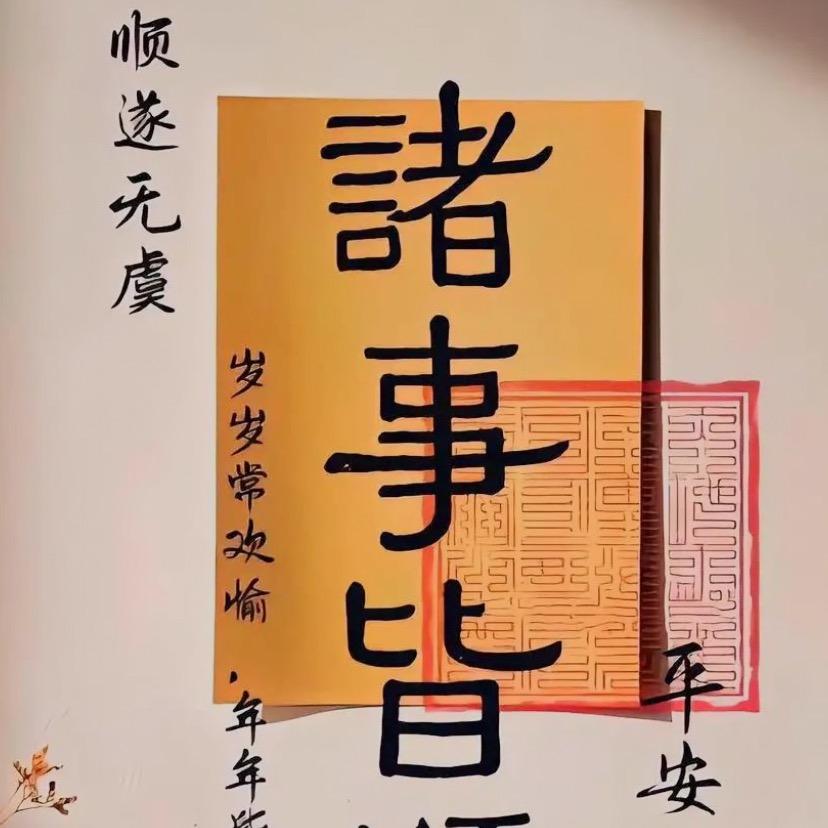 平安
諸事皆
岁岁常欢愉，年年
顺遂无虞